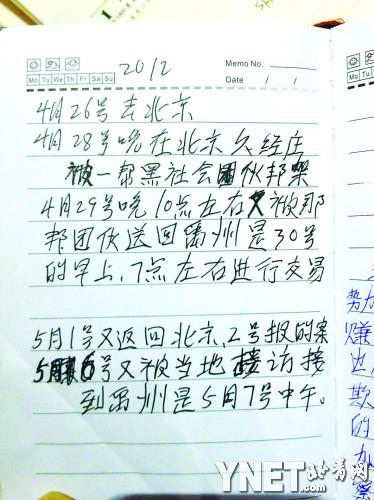 2012
Memo No.
Mo Tu We Th Fr Sa Su
Date / /
4月26号去北京
4月28号晚在北京久经庄
被一帮黑社会团伙邦架
4月29号晚10点左右又被那
邦团伙送回禹州是30号
的早上,7点左右进行交易
5月1号又返回北京,2号报的案
5月6号又被当地接访接
到禹州是5月7号中午。
势力
赚
边
欺
的
加
察
YNET.com
北青网